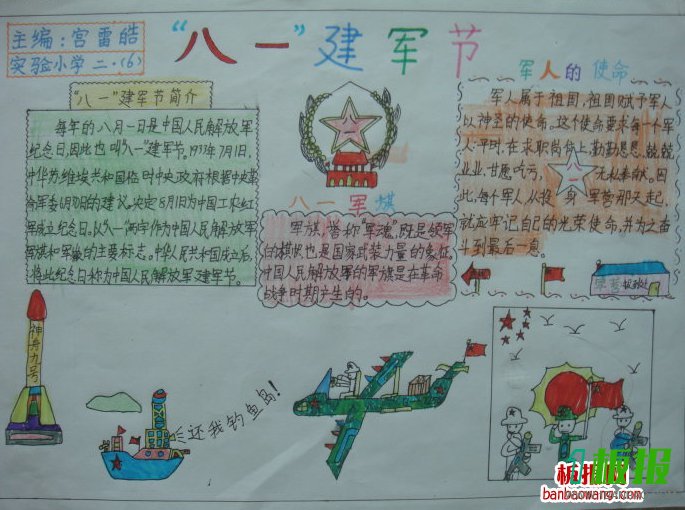 主编:宫雷皓
实验小学 二·(6)
"八一"建军节
"八一"建军节简介
每年的八月一日是中国人民解放军
纪念日,因此也叫"八一"建军节。1933年7月1日,
中华苏维埃共和国临时中央政府根据中央革
命军委6月30日的建议,决定8月1日为中国工农红
军成立纪念日。以"八一"两字作为中国人民解放军
军旗和军徽的主要标志。中华人民共和国成立后,
将此纪念日称为中国人民解放军建军节。
八一
八一军棋
军旗,誉称"军魂",既是领军
的棋帜也是国家武装力量的象征。
中国人民解放军的军旗是在革命
战争时期产生的。
军人的使命
军人属于祖国,祖国赋予军人
以神圣的使命。这个使命要求每个军
人:平时在求职岗位上勤勤恳恳、兢兢
业业,甘愿吃亏,无私奉献。因
此,每个军人从投身军营那天起,
就应牢记自己的光荣使命,并为之奋
斗到最后一息。
神舟九号
还我钓鱼岛!
板报
板报网
banbaowang.com